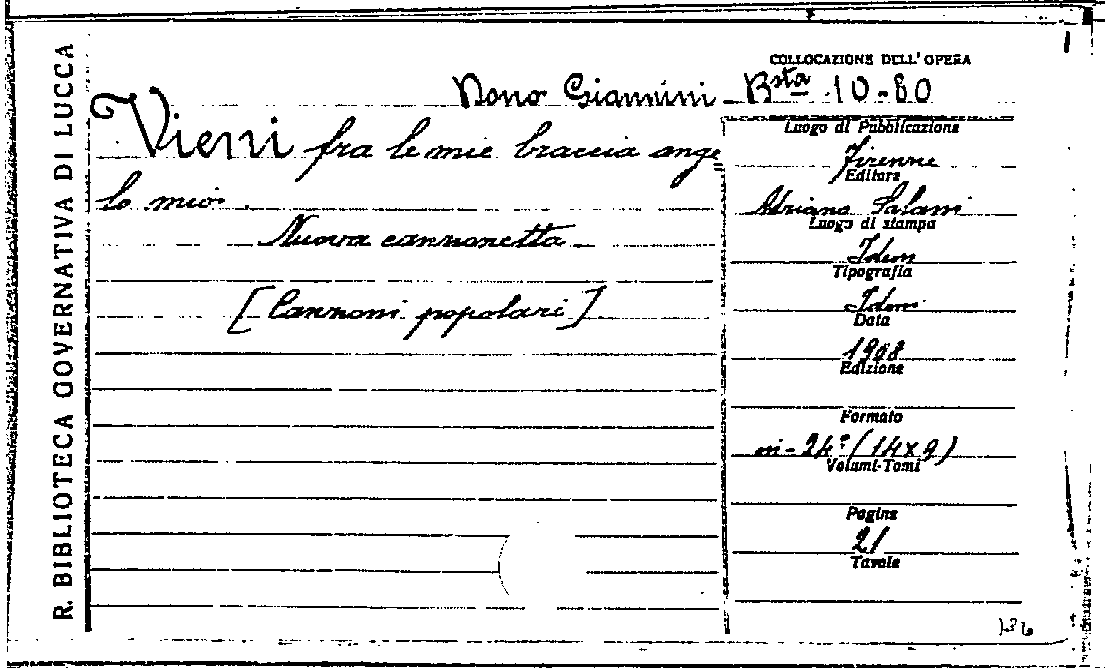 R. BIBLIOTECA GOVERNATIVA DI LUCCA
COLLOCAZIONE DELL' OPERA
Dono Giannini Bsta 10-80
Vieni fra le mie braccia ange
lo mio.
Nuova canzonetta
[Canzoni popolari]
Luogo di Pubblicazione
Firenze
Editore
Adriano Salani
Luogo di stampa
Idem
Tipografia
Idem
Data
1908
Edizione
Formato
in-24° (14x9)
Volumi-Tomi
Pagine
21
Tavole